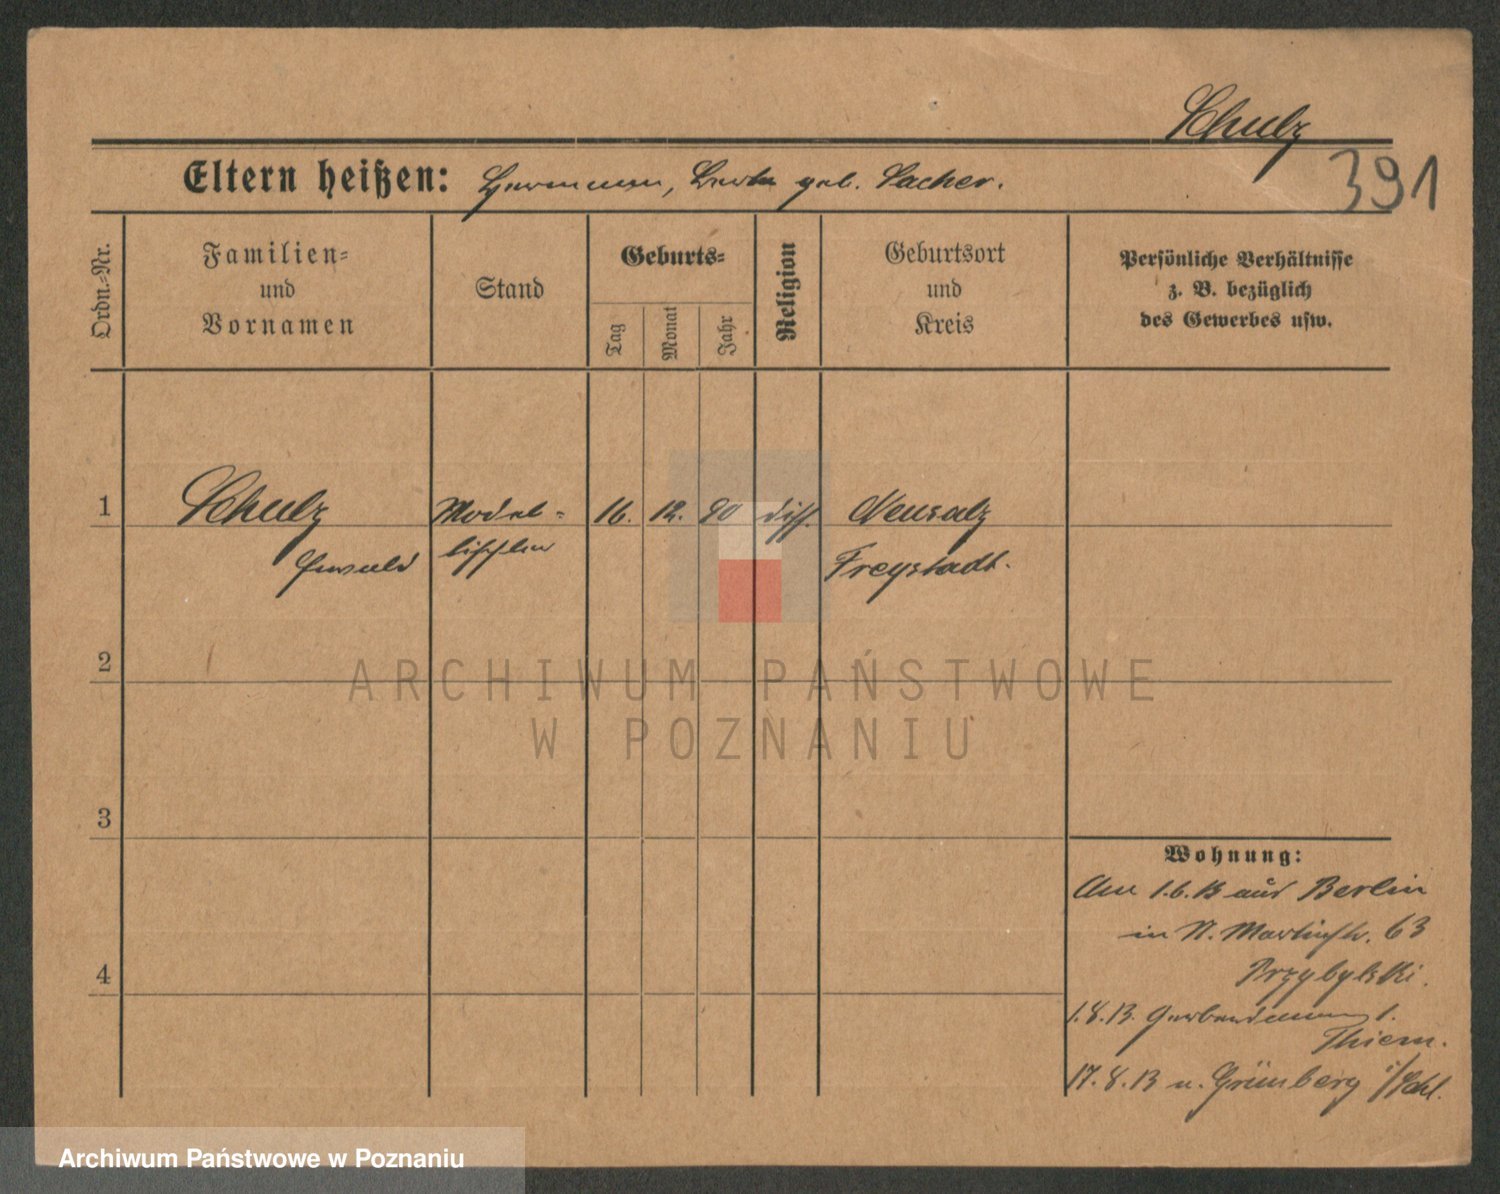 Schulz
391
Eltern heißen: Hermann, Berta geb. Sacher.
Ordn.-Nr.
Familien-
und
Vornamen
Stand
Geburts-
Tag
Monat
Jahr
Religion
Geburtsort
und
Kreis
Persönliche Verhältnisse
z. B. bezüglich
des Gewerbes usw.
1
Schulz
Ewald
Modell-
tischler
16. 12. 90 diss.
Neusalz
Freystadt.
2
3
4
Wohnung:
Am 1.6.13 aus Berlin
in St. Martinstr. 63
Przybylski.
1.8.13. 1.
Thiem.
17.8.13 n. Grünberg i/Schl.
ARCHIWUM PAŃSTWOWE
W POZNANIU
Archiwum Państwowe w Poznaniu